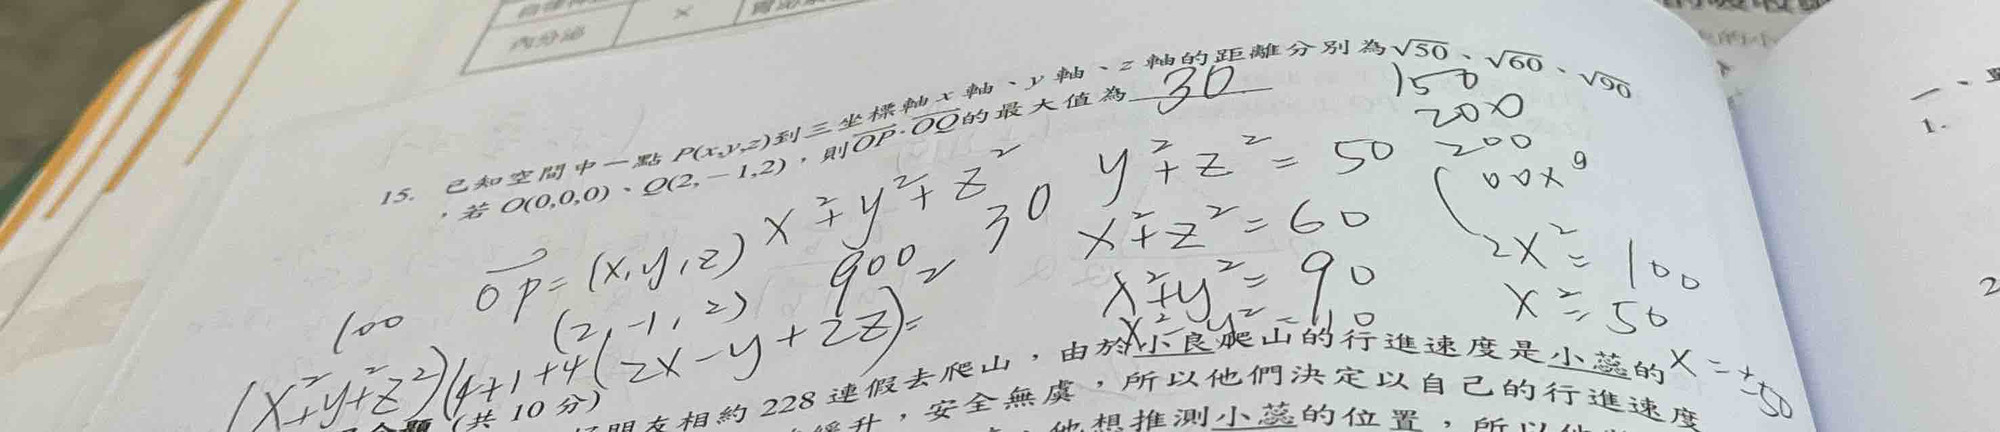 內分泌 ×
15. 已知空間中一點 P(x,y,z)到三坐標軸 x 軸、y 軸、z 軸的距離分別為√50、√60、√90
,若 O(0,0,0)、Q(2,-1,2),則OP·OQ的最大值為 30
150
200
200
y²+z²=50
x²+z²=60
x²+y²=90
x²-y²=10
2x²=100
x²=50
x=±√50
OP=(x,y,z) x²+y²+z²
(2,-1,2) 900 30
100
(x²+y²+z²)(4+1+4)(2x-y+2z)²=
(共 10 分)
朋友相約 228 連假去爬山,由於小良爬山的行進速度是小蕊的
緩升,安全無虞,所以他們決定以自己的行進速度
他想推測小蕊的位置,所以他
一、
1.
2